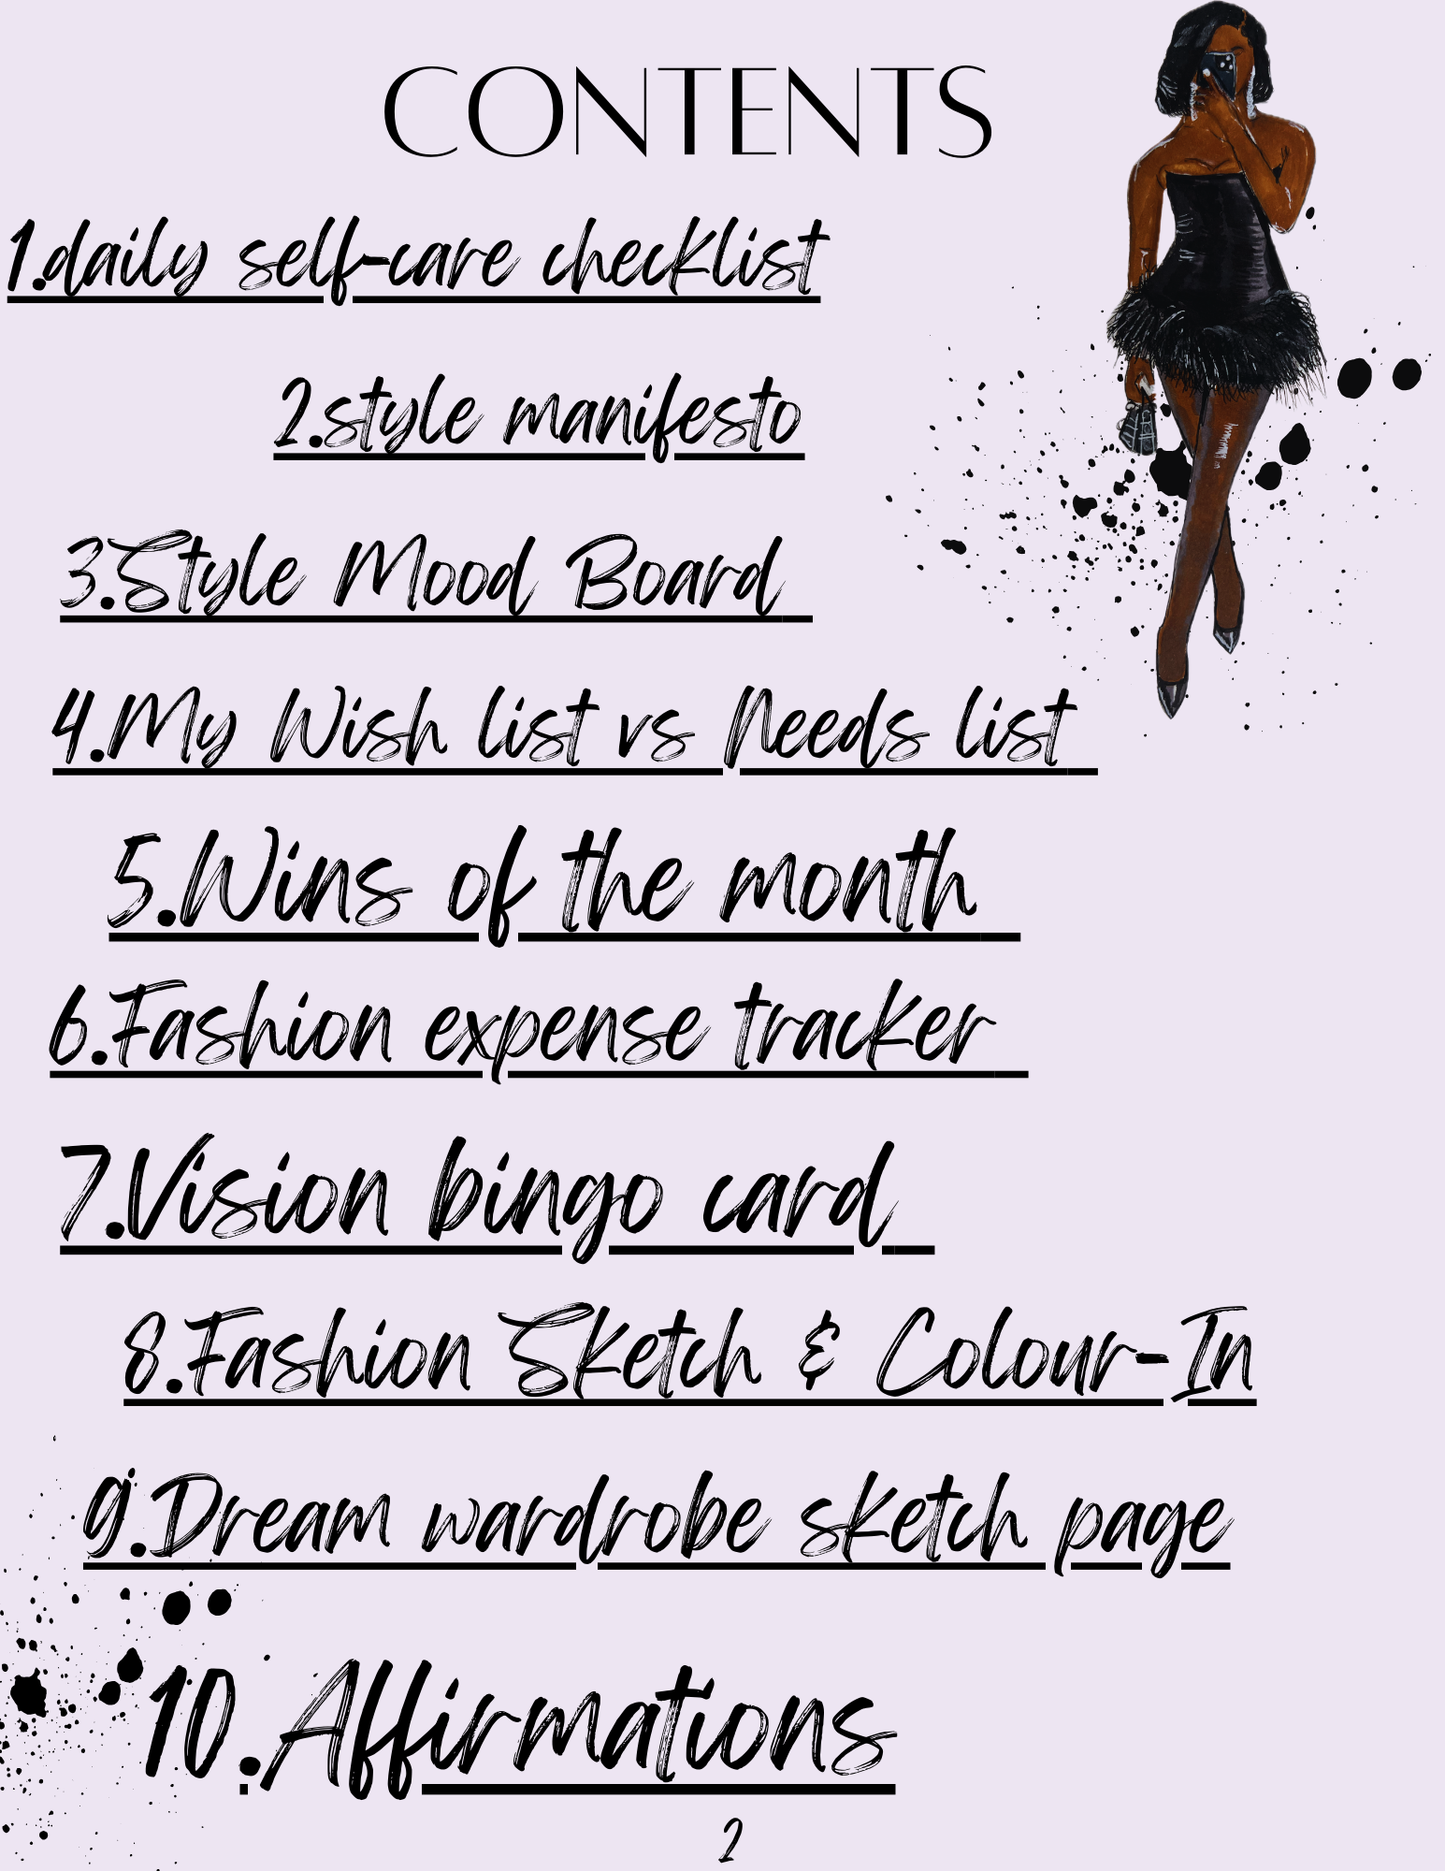 CONTENTS
1.daily self-care checklist
2.style manifesto
3.Style Mood Board
4.My Wish list vs Needs list
5.Wins of the month
6.Fashion expense tracker
7.Vision bingo card
8.Fashion Sketch & Colour-In
9.Dream wardrobe sketch page
10.Affirmations
2